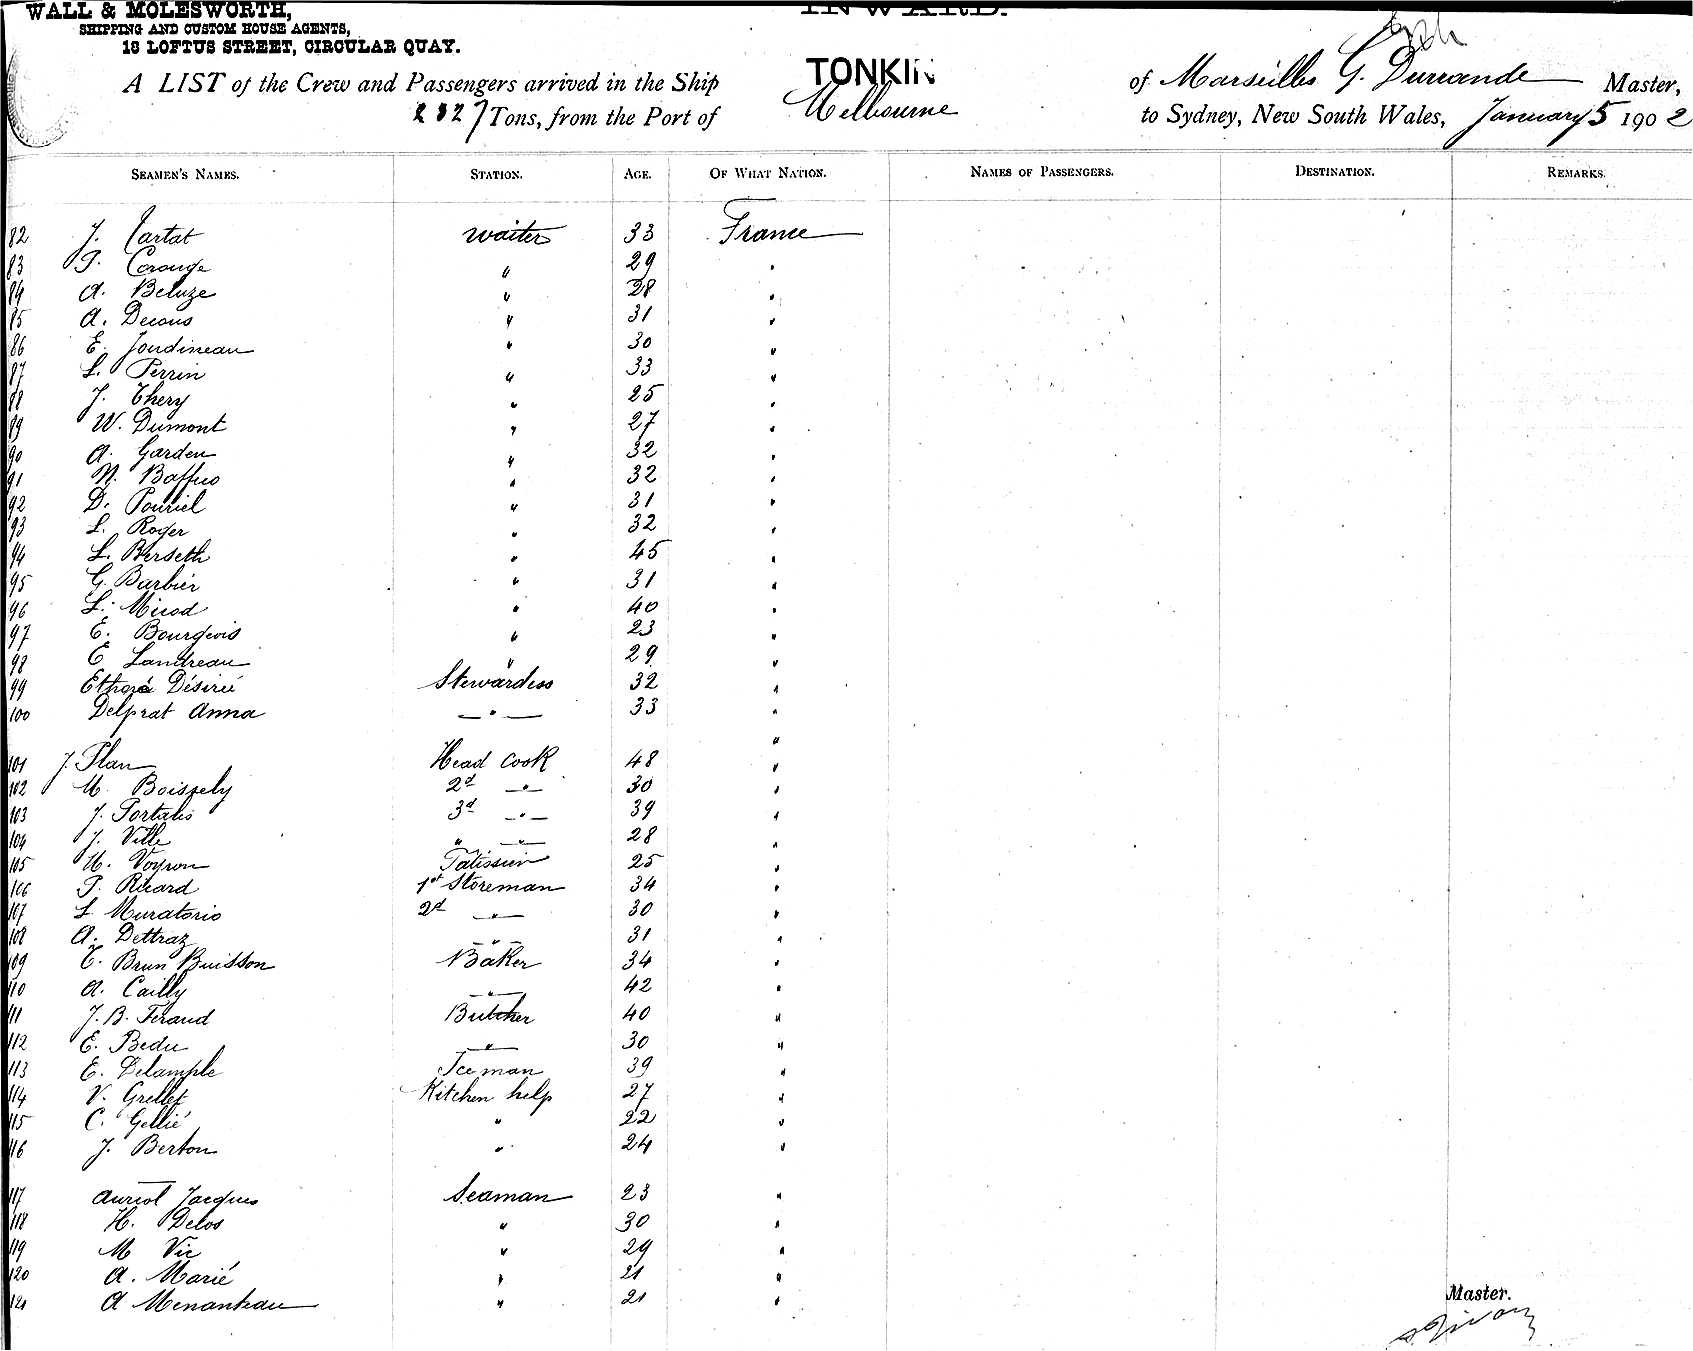 WALL & MOLESWORTH, INWARD.
SHIPPING AND CUSTOM HOUSE AGENTS,
13 LOFTUS STREET, CIRCULAR QUAY.
A LIST of the Crew and Passengers arrived in the Ship TONKIN of Marseilles G. Durrande Master,
Tons, from the Port of Melbourne to Sydney, New South Wales, January 5 1902
SEAMEN'S NAMES. STATION. AGE. OF WHAT NATION. NAMES OF PASSENGERS. DESTINATION. REMARKS.
82 J. Tartat waiter 33 France
83 29 "
84 A. Beluze " 28 "
85 A. Decous " 31 "
86 E. Joudineau " 30 "
87 L. Perrin " 33 "
88 J. Thery " 25 "
89 W. Dumont " 27 "
90 A. Garden " 32 "
91 " 32 "
92 D. Pouriel " 31 "
93 L. Roger " 32 "
94 L. Berseth " 45 "
95 G. Barbier " 31 "
96 L. Micod " 40 "
97 E. Bourgeois " 23 "
98 E Landreau " 29 "
99 Désirée Stewardess 32 "
100 Delprat Anna — " — 33 "
"
101 J. Plan Head Cook 48 "
102 M. Boissely 2d — " — 30 "
103 J. Portalis 3d — " — 39 "
104 J. Ville " — " — 28 "
105 M. Voyron Patissier 25 "
106 P. Ricard 1st Storeman 34 "
107 L Muratorio 2d — " — 30 "
108 A. Dettraz — " — 31 "
109 E. Brun Buisson Baker 34 "
110 A. Cailly — " — 42 "
111 J. B. Feraud Butcher 40 "
112 E. Bedu — " — 30 "
113 E. Delample Iceman 39 "
114 V. Grellet Kitchen help 27 "
115 C. Gellié " 22 "
116 J. Berton " 24 "
117 Auriol Jacques Seaman 23 "
118 H. Delos " 30 "
119 M Vic " 29 "
120 A. Marié " 21 "
121 A Menanteau " 21 "
Master.